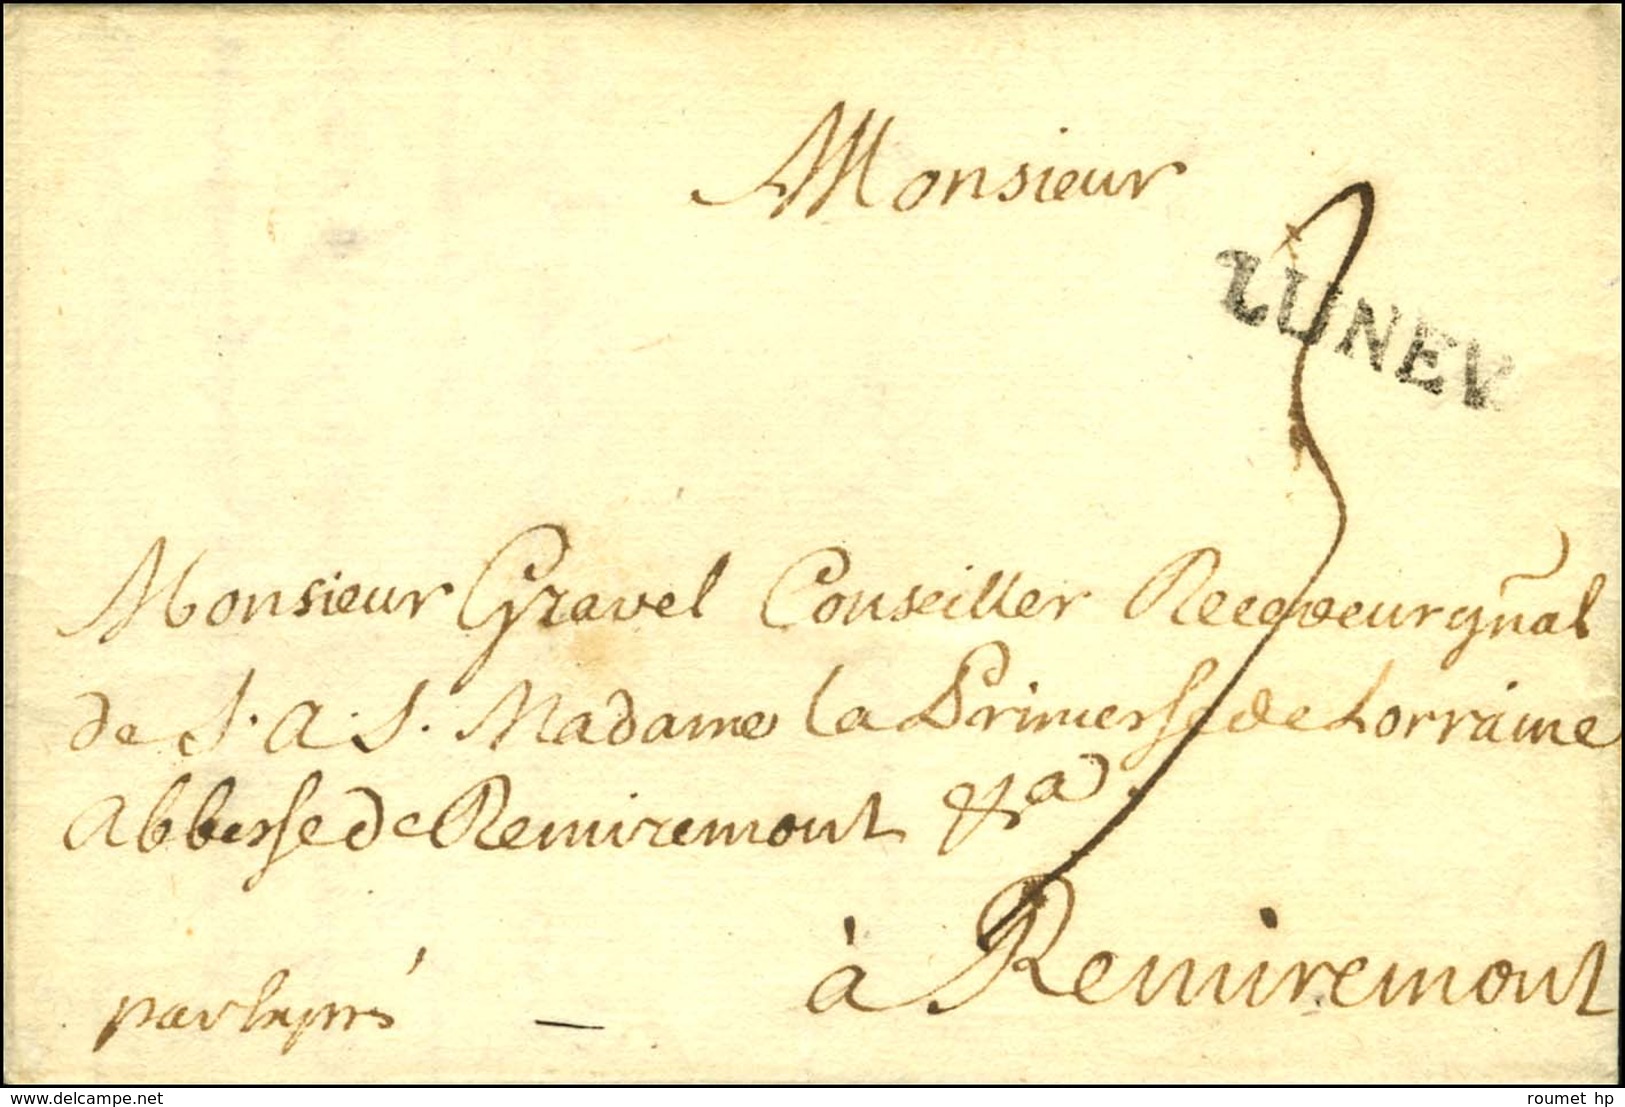 Monsieur
LUNEV
3
Monsieur Gravel Conseiller Receveur gñal
de S. A. S. Madame la Princesse de Lorraine
Abbesse de Remiremont &ra.
à Remiremont
par exprés
delcampe.net
roumet hp